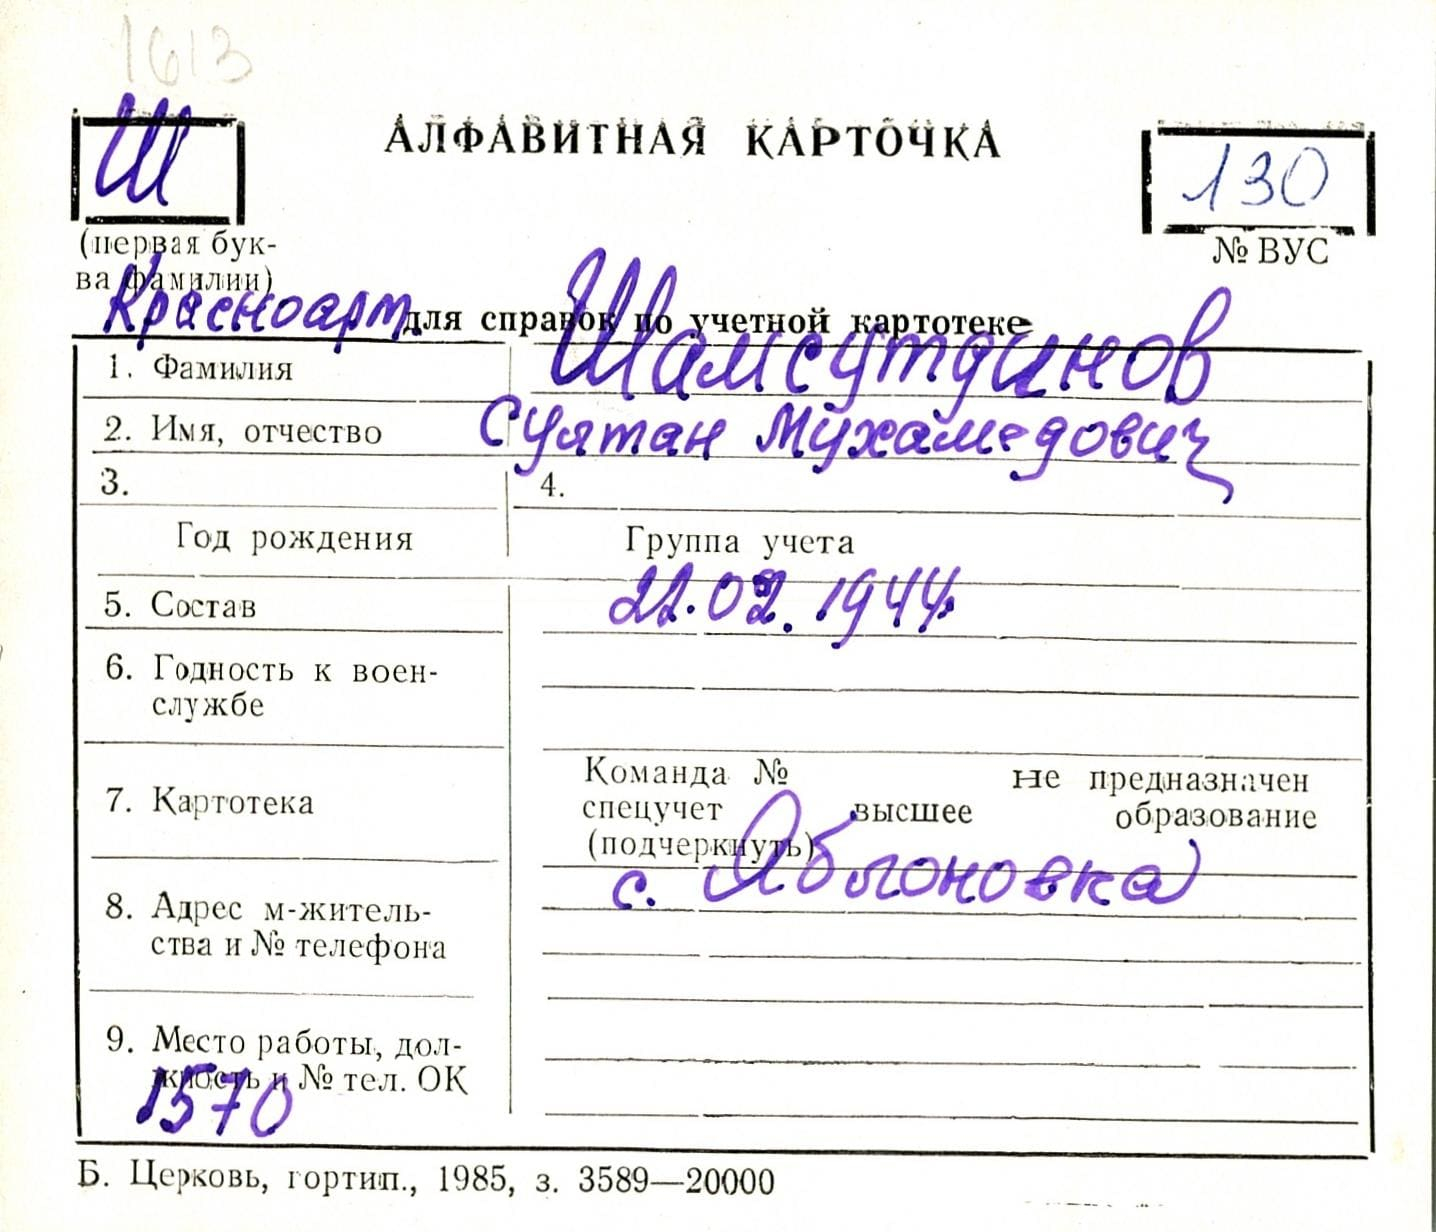 1613
Ш
АЛФАВИТНАЯ КАРТОЧКА
130
(первая бук-
ва фамилии)
№ ВУС
Красноарм.
для справок по учетной картотеке
1. Фамилия Шамсутдинов
2. Имя, отчество Султан Мухамедович
3. 4.
Год рождения Группа учета
5. Состав 22.02.1944.
6. Годность к воен-
службе
7. Картотека
Команда № не предназначен
спецучет высшее образование
(подчеркнуть)
с. Яблоновка
8. Адрес м-житель-
ства и № телефона
9. Место работы, дол-
жность и № тел. ОК
1570
Б. Церковь, гортип., 1985, з. 3589—20000